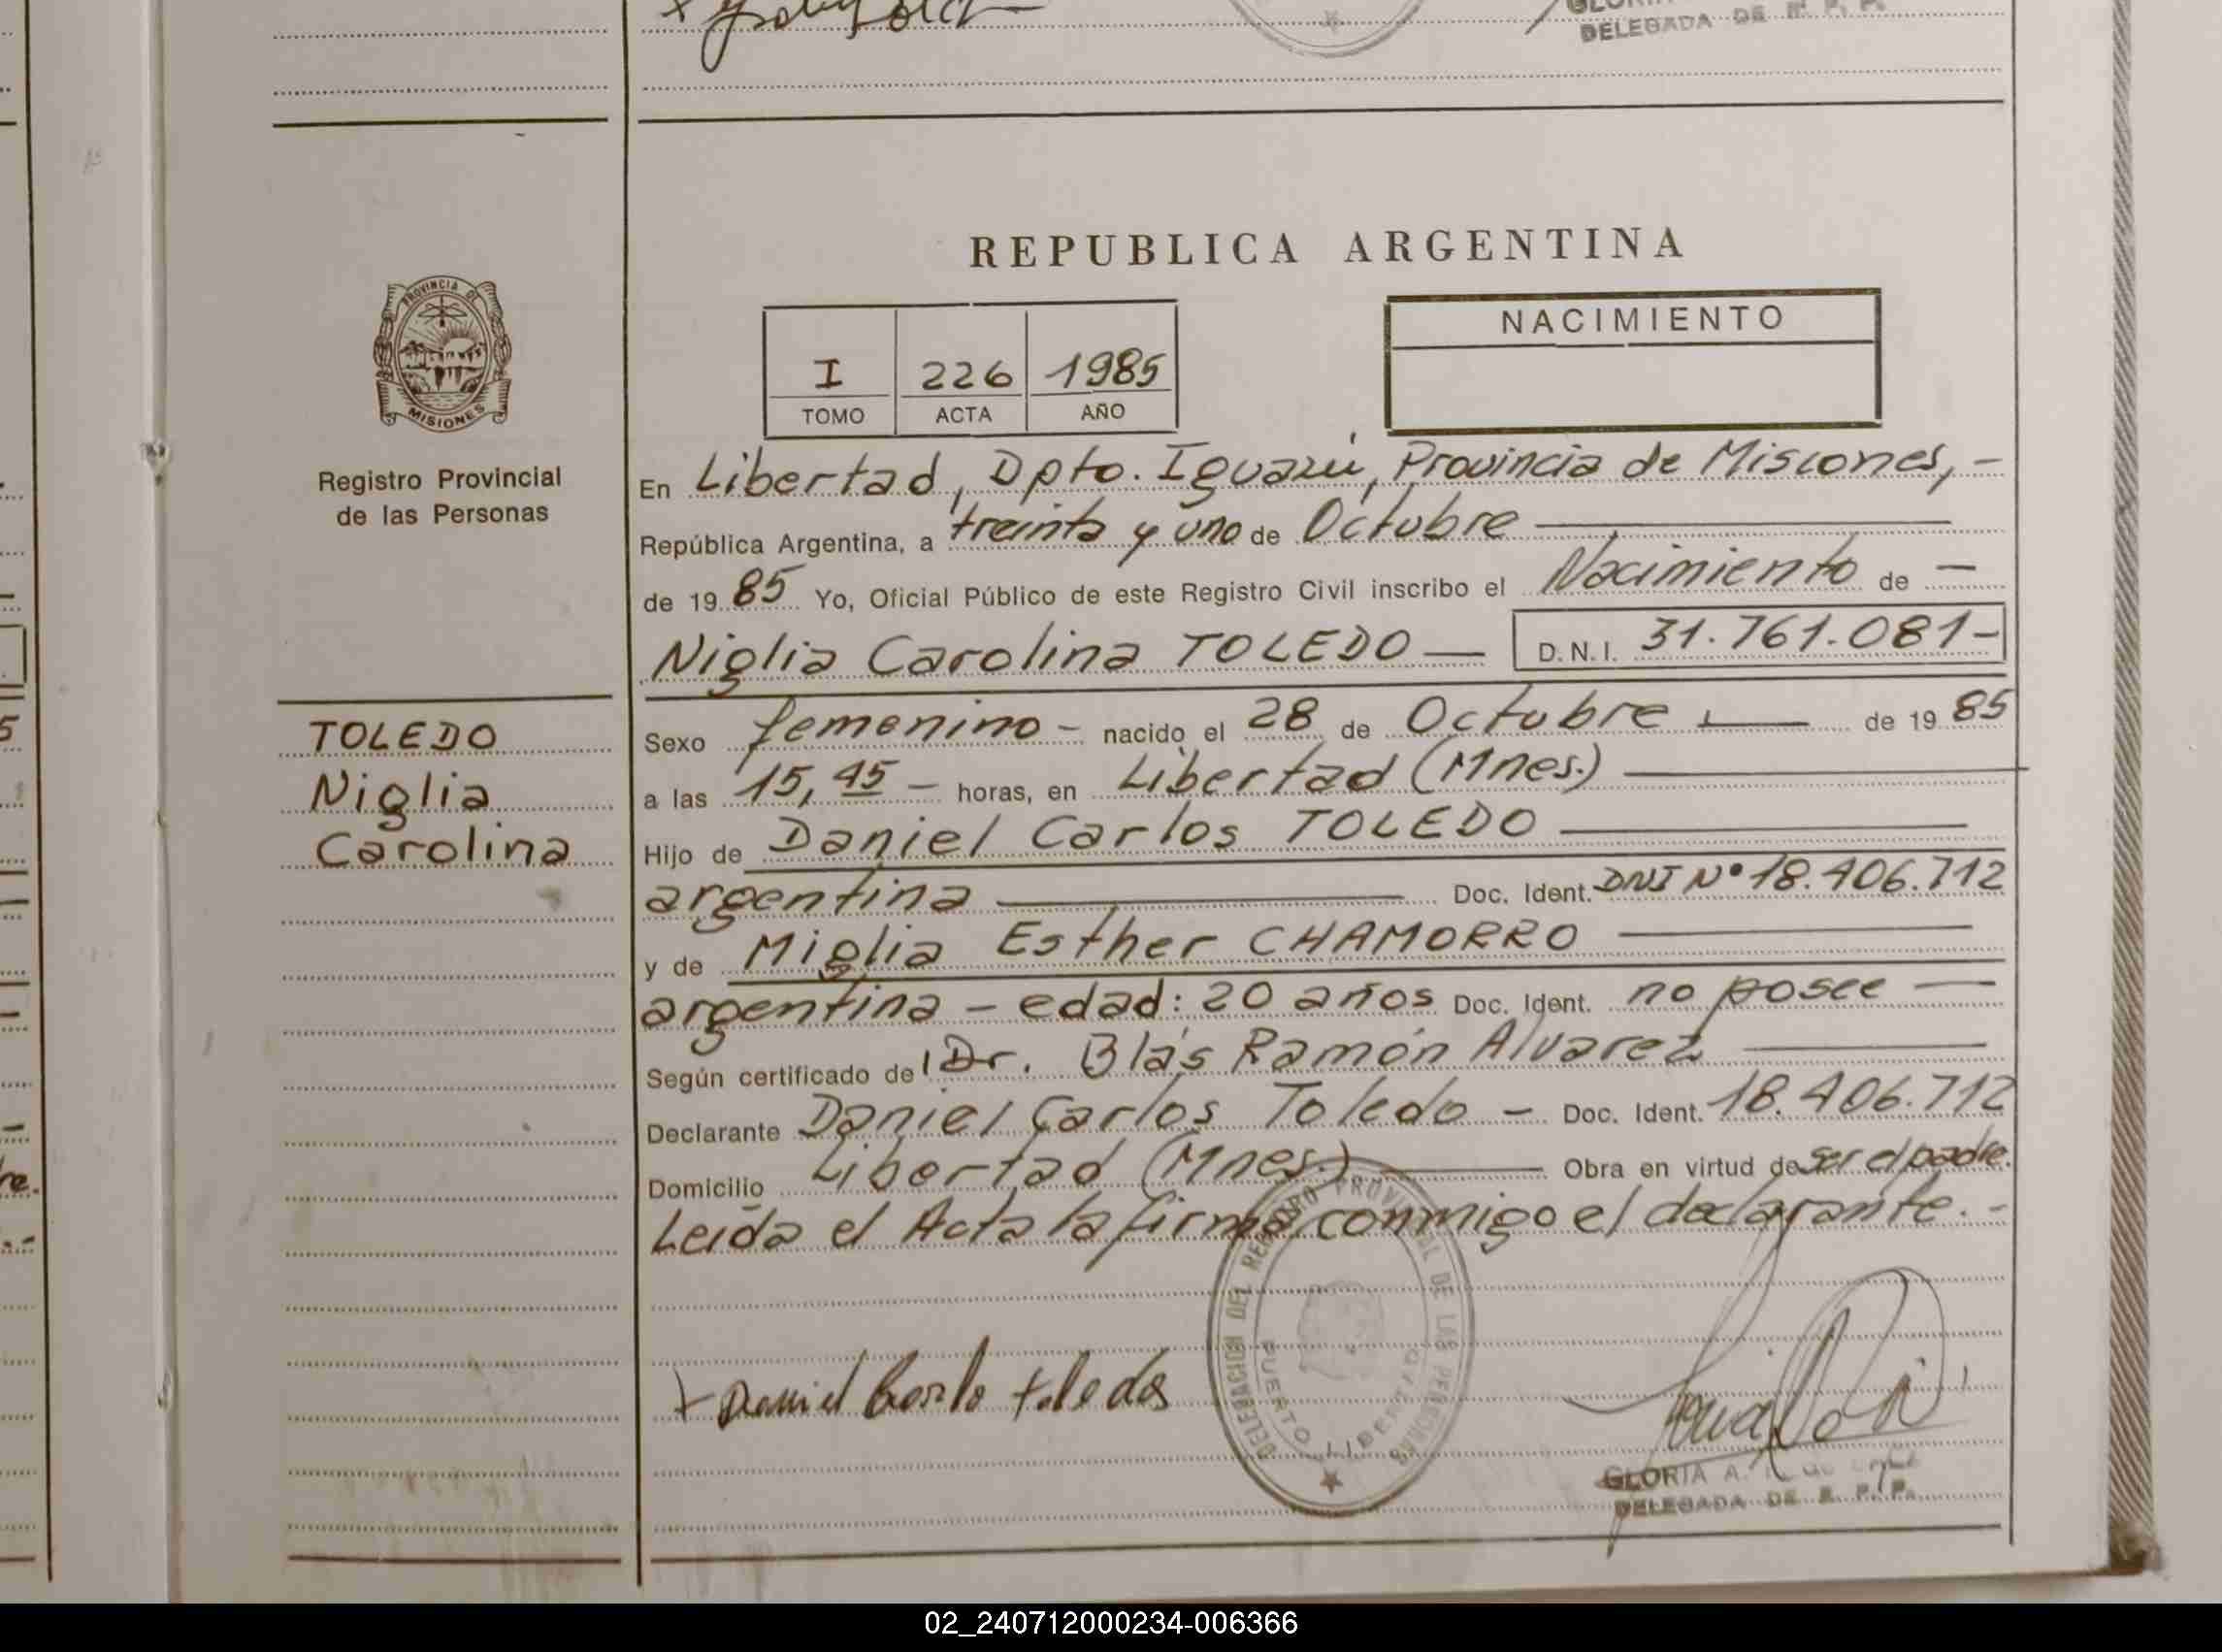 DELEGADA DE R. P. P.
REPUBLICA ARGENTINA
PROVINCIA DE
MISIONES
Registro Provincial
de las Personas
I 226 1985
TOMO ACTA AÑO
NACIMIENTO
En Libertad, Dpto. Iguazú, Provincia de Misiones,-
República Argentina, a treinta y uno de Octubre
de 1985 Yo, Oficial Público de este Registro Civil inscribo el Nacimiento de —
Niglia Carolina TOLEDO — D.N.I. 31.761.081-
TOLEDO
Niglia
Carolina
Sexo femenino - nacido el 28 de Octubre — de 1985
a las 15,45 - horas, en Libertad (Mnes.)
Hijo de Daniel Carlos TOLEDO
argentina — Doc. Ident. DNI Nº 18.406.712
y de Miglia Esther CHAMORRO
argentina - edad: 20 años Doc. Ident. no posee —
Según certificado del Dr. Blás Ramón Alvarez
Declarante Daniel Carlos Toledo - Doc. Ident. 18.406.712
Domicilio Libertad (Mnes.) — Obra en virtud de ser el padre.
Leida el Acta la firma conmigo el declarante.-
DELEGACION DEL REGISTRO PROVINCIAL DE LAS PERSONAS
PUERTO LIBERTAD
+ Daniel Carlo toledo
GLORIA A.
DELEGADA DE R. P. P.
02_240712000234-006366